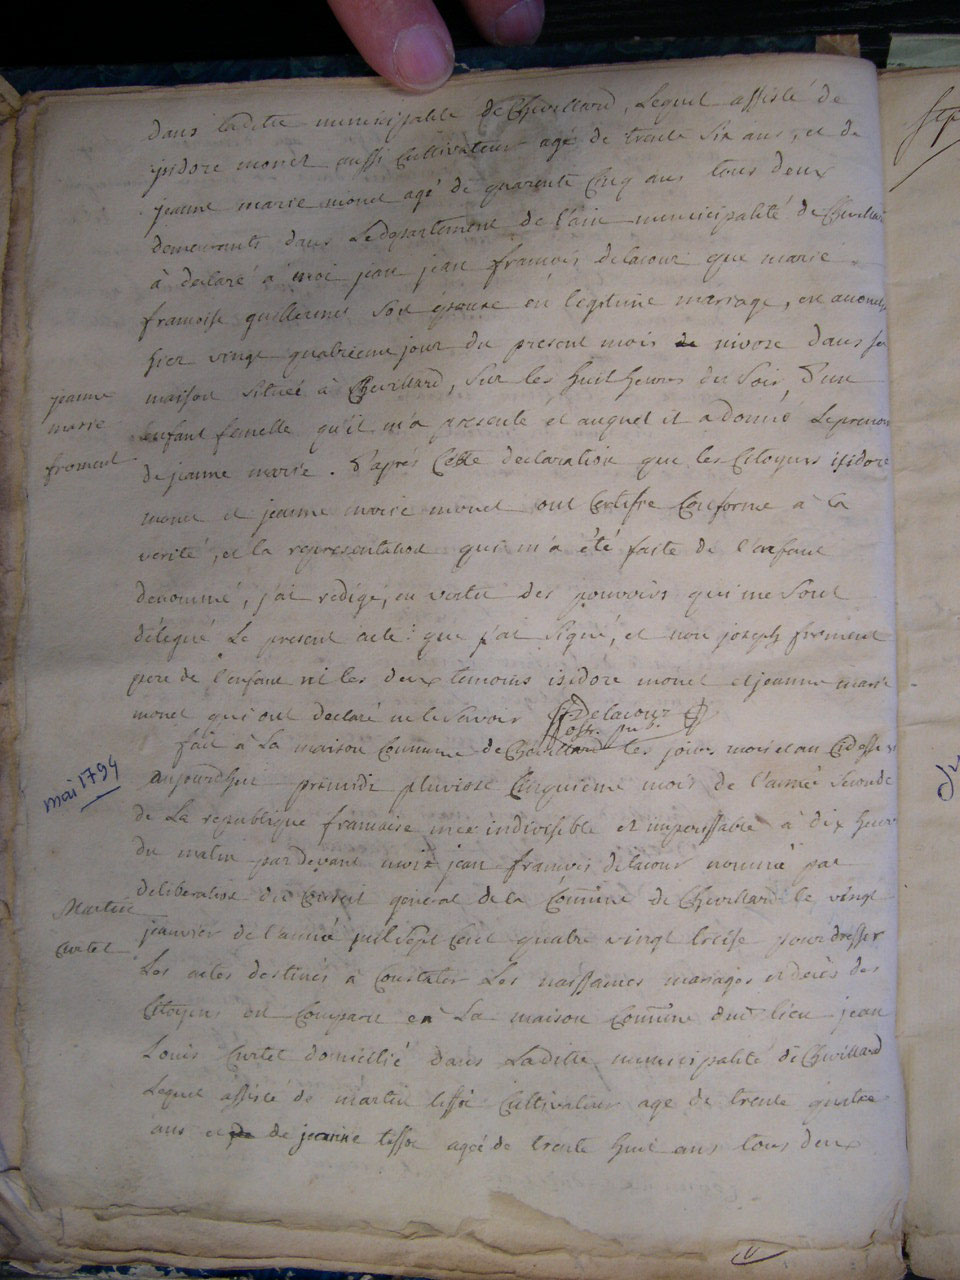 dans ladite municipalité de Chevillard, Lequel assisté de
isidore monet aussi Cultivateur agé de trente Six ans, et de
jeanne marie monet agé de quarente Cinq ans tous deux
demeurants dans Le departement de l'ain municipalité de Chevillard
à declaré à moi jean jean francois delacour que marie
francoise guillermet Son épouse en légitime mariage, est auouché
hier vingt quatrieme jour du present mois de nivose dans sa
maison située à Chevillard, Sur les huit heures du Soir, D'un
jeanne
marie
froment
enfant femelle qu'il m'a presenté et auquel il a donné Le prenom
de jeanne marie. D'après Cette declaration que les Citoyens isidore
monet et jeanne marie monet ont Certifié Conforme à la
verité, et la representation qui m'a été faite de l'enfant
denommé, j'ai redigé, en vertu des pouvoirs qui me Sont
délegué Le present acte que j'ai Signé, et non joseph froment
pere de l'enfant ni les deux temoins isidore monet et jeanne marie
monet qui ont declaré ne le Savoir Delacour
off. pub.
fait à La maison Commune de Chevillard les jours mois et an Cidessus
mai 1794
aujourd'huy primidi pluviose Cinquieme mois de l'année Seconde
de La republique francaise une indivisible et imperissable à dix heures
du matin pardevant moi jean francois delacour nommé par
deliberation du Conseil général de la Commune de Chevillard le vingt
Martin
Curtet
janvier de l'année mil Sept Cent quatre vingt treise pour dresser
Les actes destinés à Constater Les naissances mariages et decès des
Citoyens est Comparu en La maison Commune dud. lieu jean
Louis Curtet domicilié dans Ladite municipalité de Chevillard
Lequel assisté de martin tissot Cultivateur agé de trente quatre
ans et de jeanne tissot agée de trente huit ans tous deux